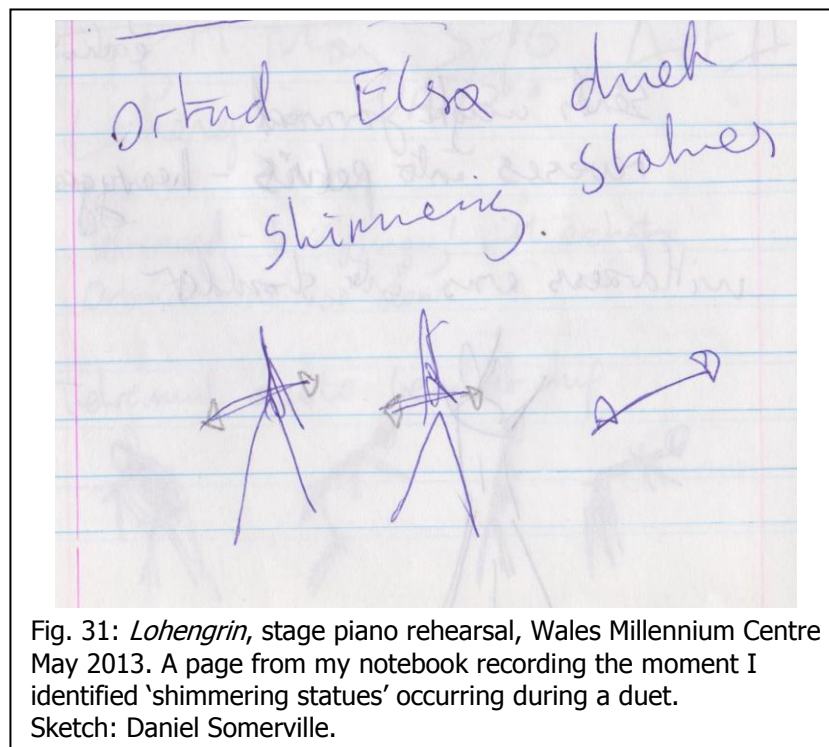 Ortrud Elsa duet
shimmering. statues
Fig. 31: Lohengrin, stage piano rehearsal, Wales Millennium Centre
May 2013. A page from my notebook recording the moment I
identified ‘shimmering statues’ occurring during a duet.
Sketch: Daniel Somerville.